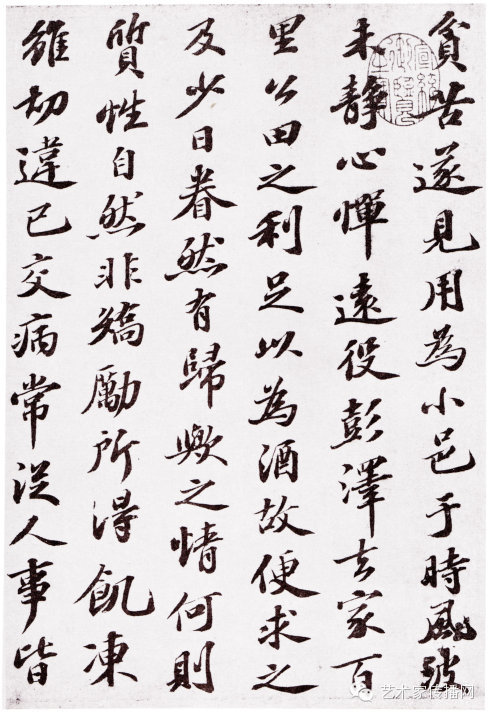 貧苦遂見用為小邑于時風波
未靜心憚遠役彭澤去家百
里公田之利足以為酒故便求之
及少日眷然有歸歟之情何則
質性自然非矯勵所得飢凍
雖切違已交病常従人事皆
宣統御覽之寶
艺术家传播网